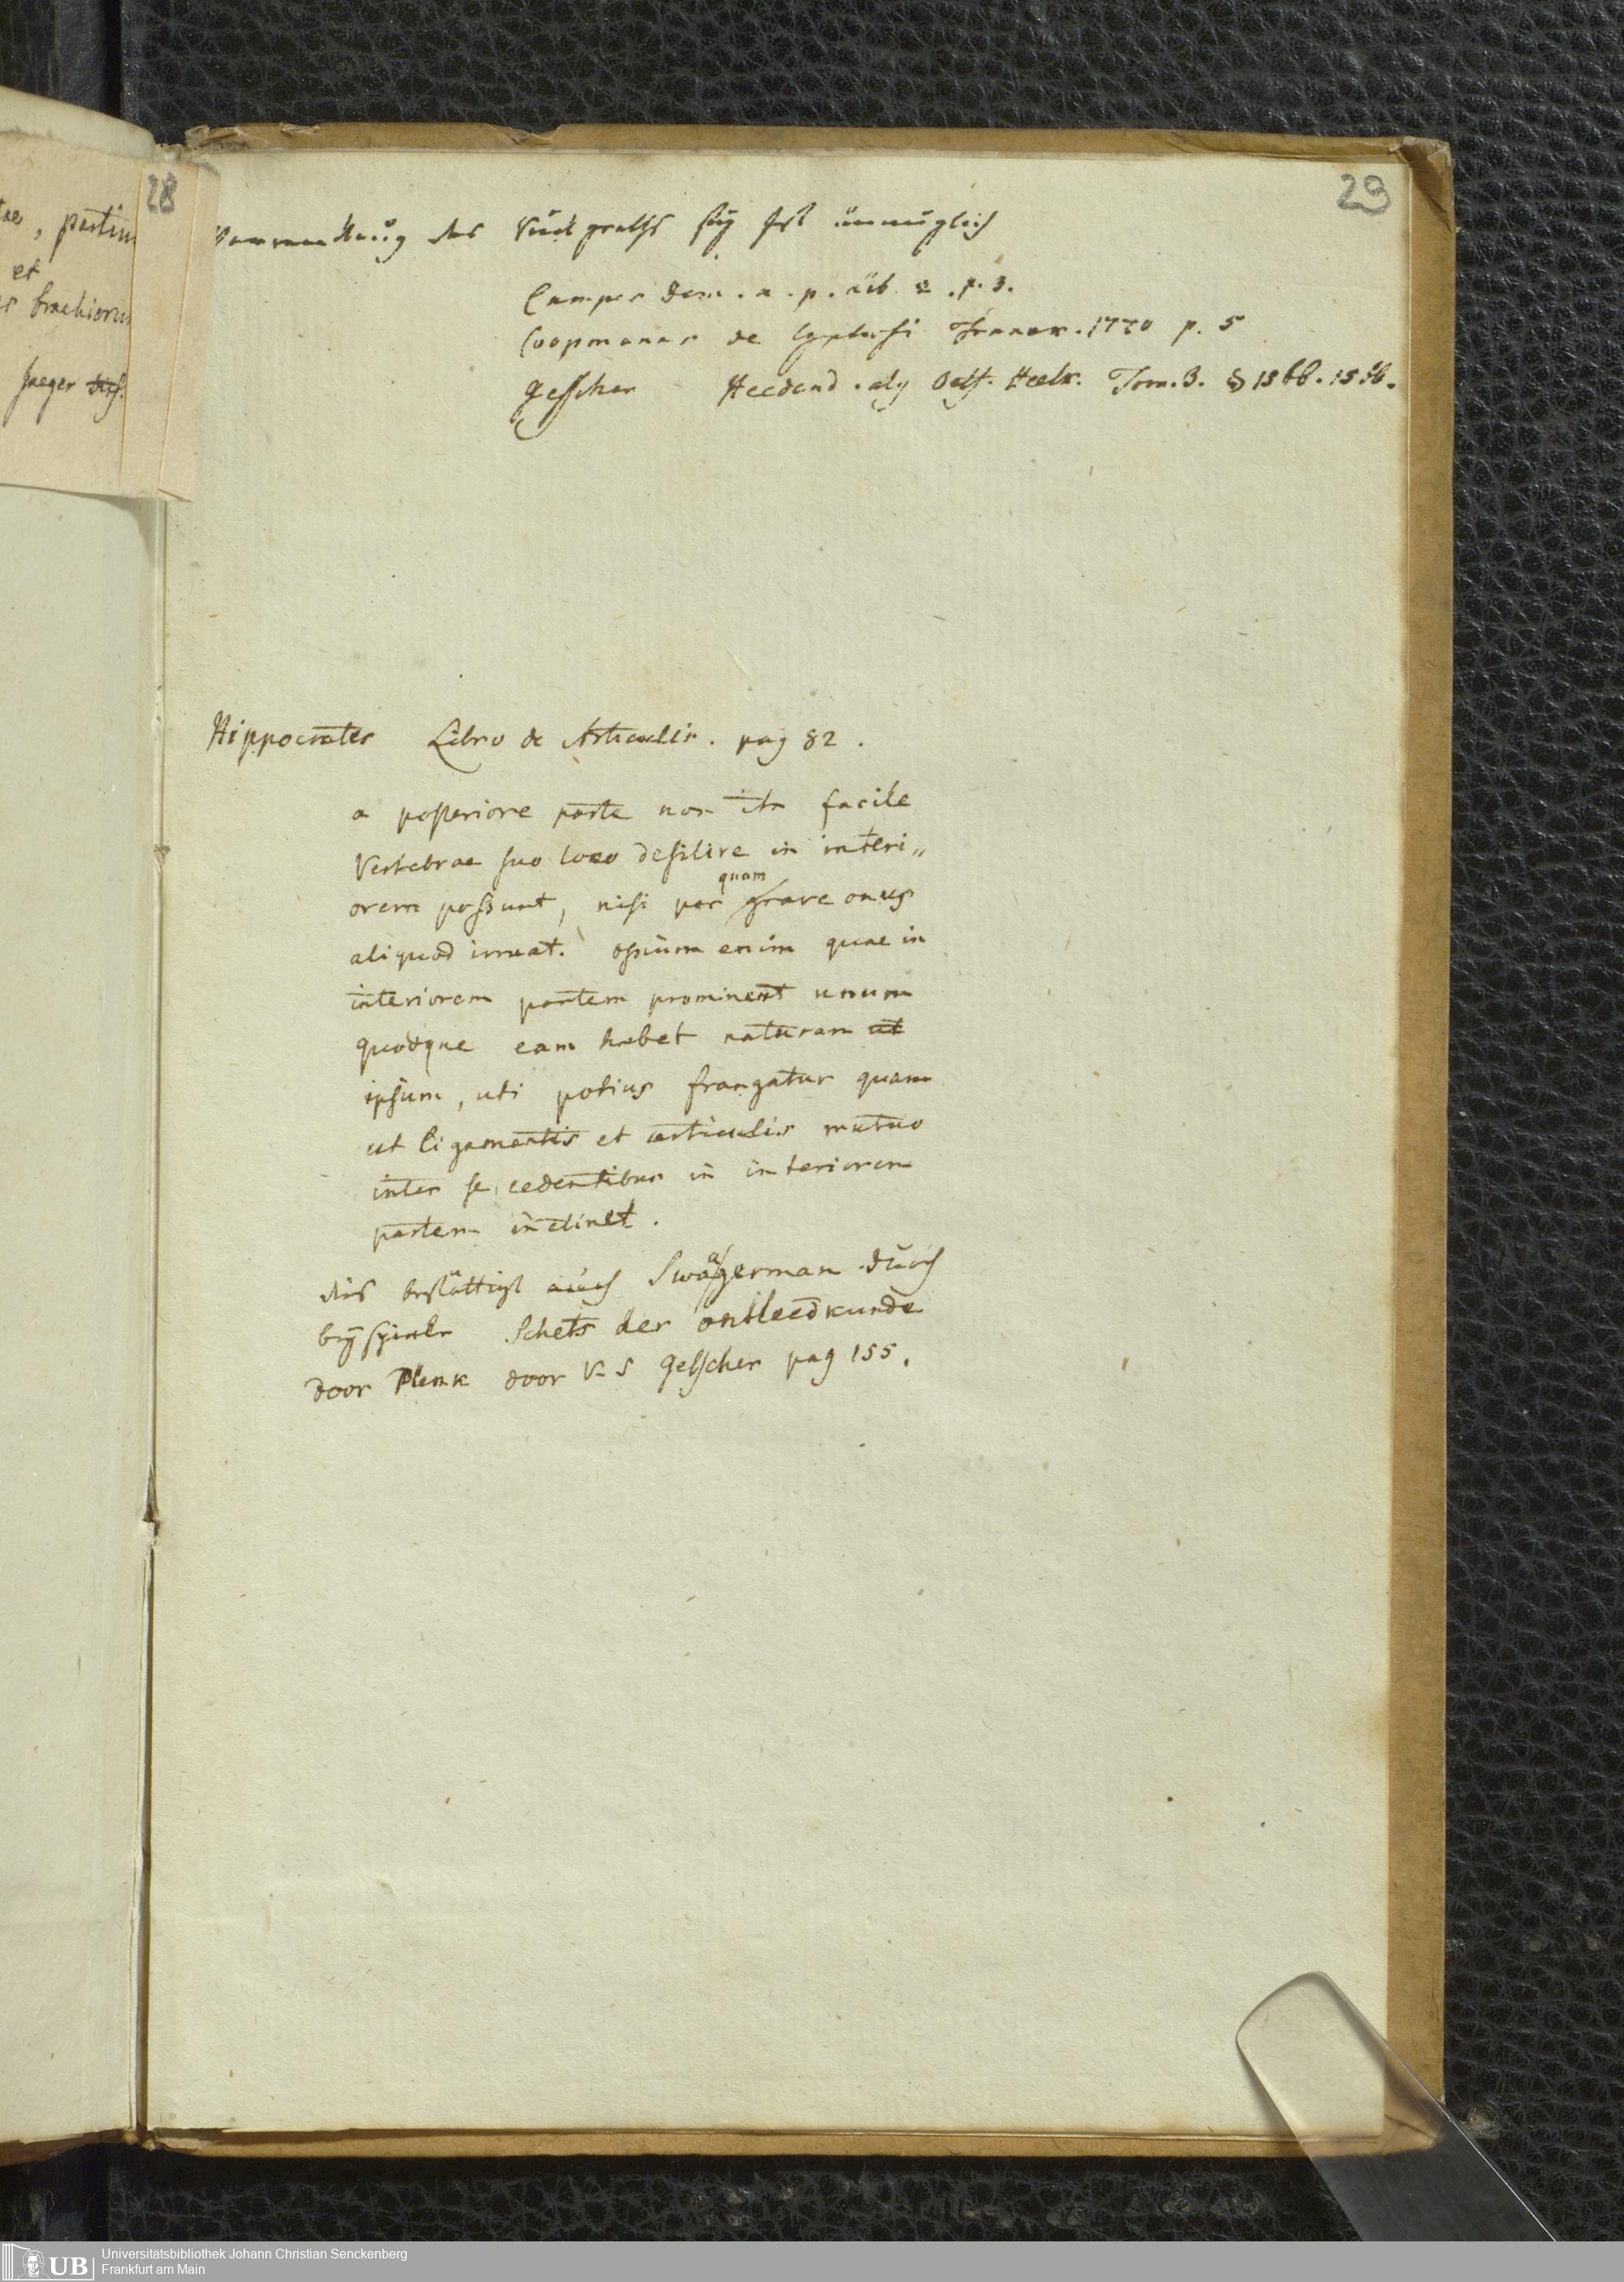 28
29
tae, partim
et
brachioru
Jaeger diss.
des Rückgraths sey fast unmöglich
Camper Dem. a. p. Lib. 2. p. 3.
Coopmans de Cyphosi Franek. 1770 p. 5
Gesscher Heedend. Oeff. Heelk. Tom. 3. §
Hippocrates Libro de Articulis. pag 82.
a posteriore parte non ita facile
Vertebrae suo loco desilire in interi„
orem possunt, nisi per quam grave onus
aliquod irruat. ossium enim quae in
interiorem partem prominent unum
quodque eam habet naturam ut
ipsum, uti potius frangatur quam
ut ligamentis et articulis mutuo
inter se cedentibus in interiorem
partem inclinet.
dies bestättigt auch Swagerman durch
Schets der ontleedkunde
door Plenk door V. S Gesscher pag 155.
UB Universitätsbibliothek Johann Christian Senckenberg
Frankfurt am Main